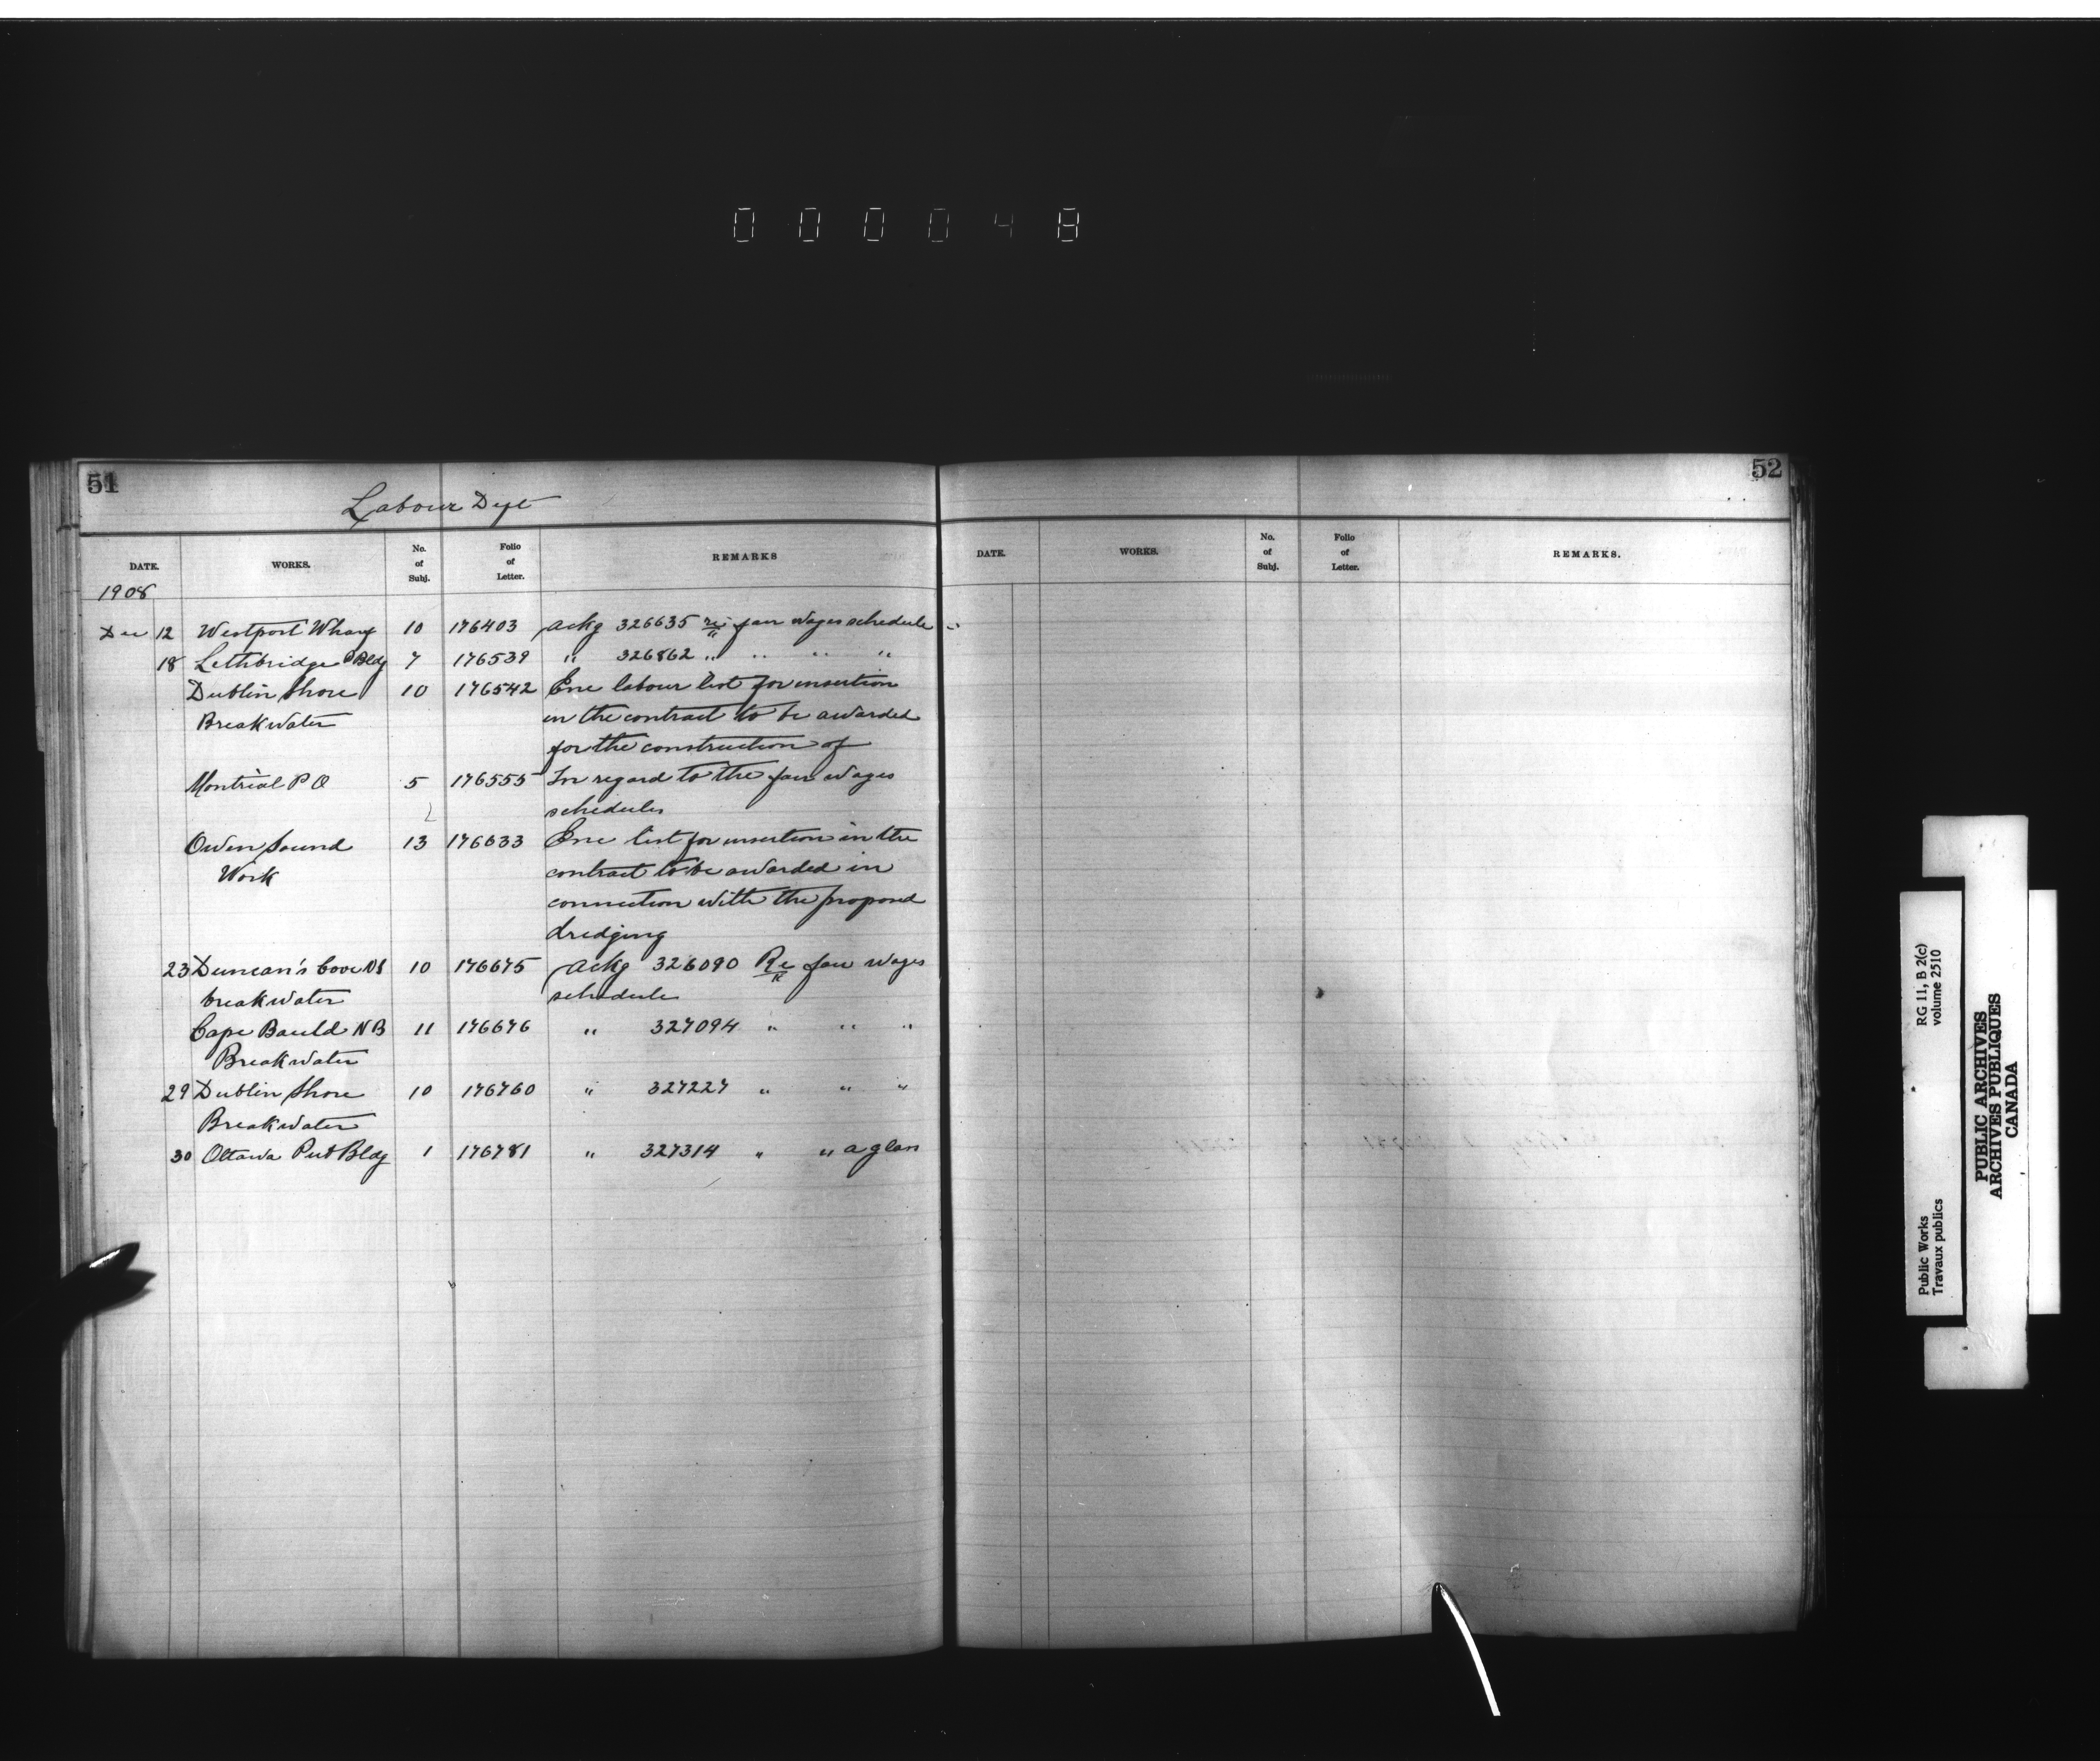 000048
51
Labour Dept
DATE. WORKS. No. of Subj. Folio of Letter. REMARKS
1908
Dec 12 Westport Wharf 10 176403 Ackg 326635 re fair wages schedule
18 Lethbridge P Bldg 7 176539 " 326862 " " " "
Dublin Shore 10 176542 Enc labour list for insertion
Breakwater in the contract to be awarded
for the construction of
Montreal P O 5 176555 In regard to the fair wages
schedules
Owen Sound 13 176633 Enc list for insertion in the
Work contract to be awarded in
connection with the proposed
dredging
23 Duncan's Cove NS 10 176675 Ackg 326090 Re fair wages
breakwater schedule
Cape Bauld NB 11 176676 " 327094 " " "
Breakwater
29 Dublin Shore 10 176760 " 327227 " " "
Breakwater
30 Ottawa Pub Bldg 1 176781 " 327314 "
52
DATE. WORKS. No. of Subj. Folio of Letter. REMARKS.
RG 11, B 2(c)
volume 2510
Public Works
Travaux publics
PUBLIC ARCHIVES
ARCHIVES PUBLIQUES
CANADA